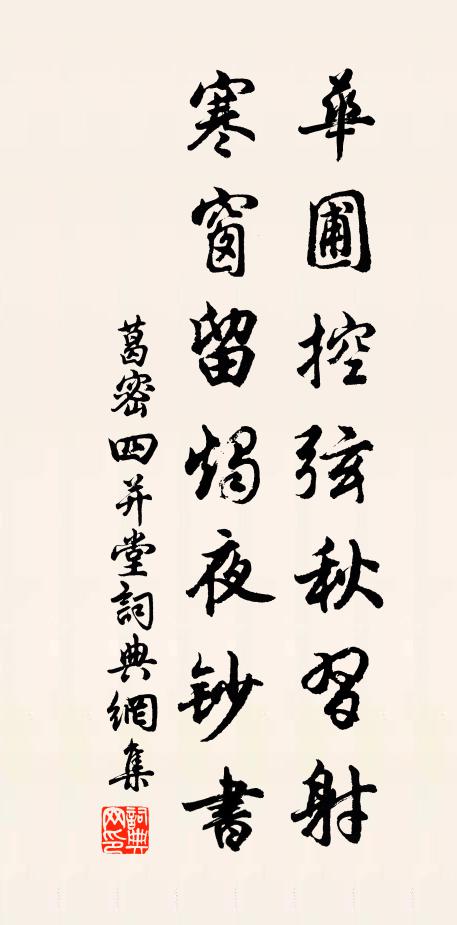 華圃控弦秋習射
寒窗留燭夜鈔書
葛密四并堂詞典網集
詞典網印